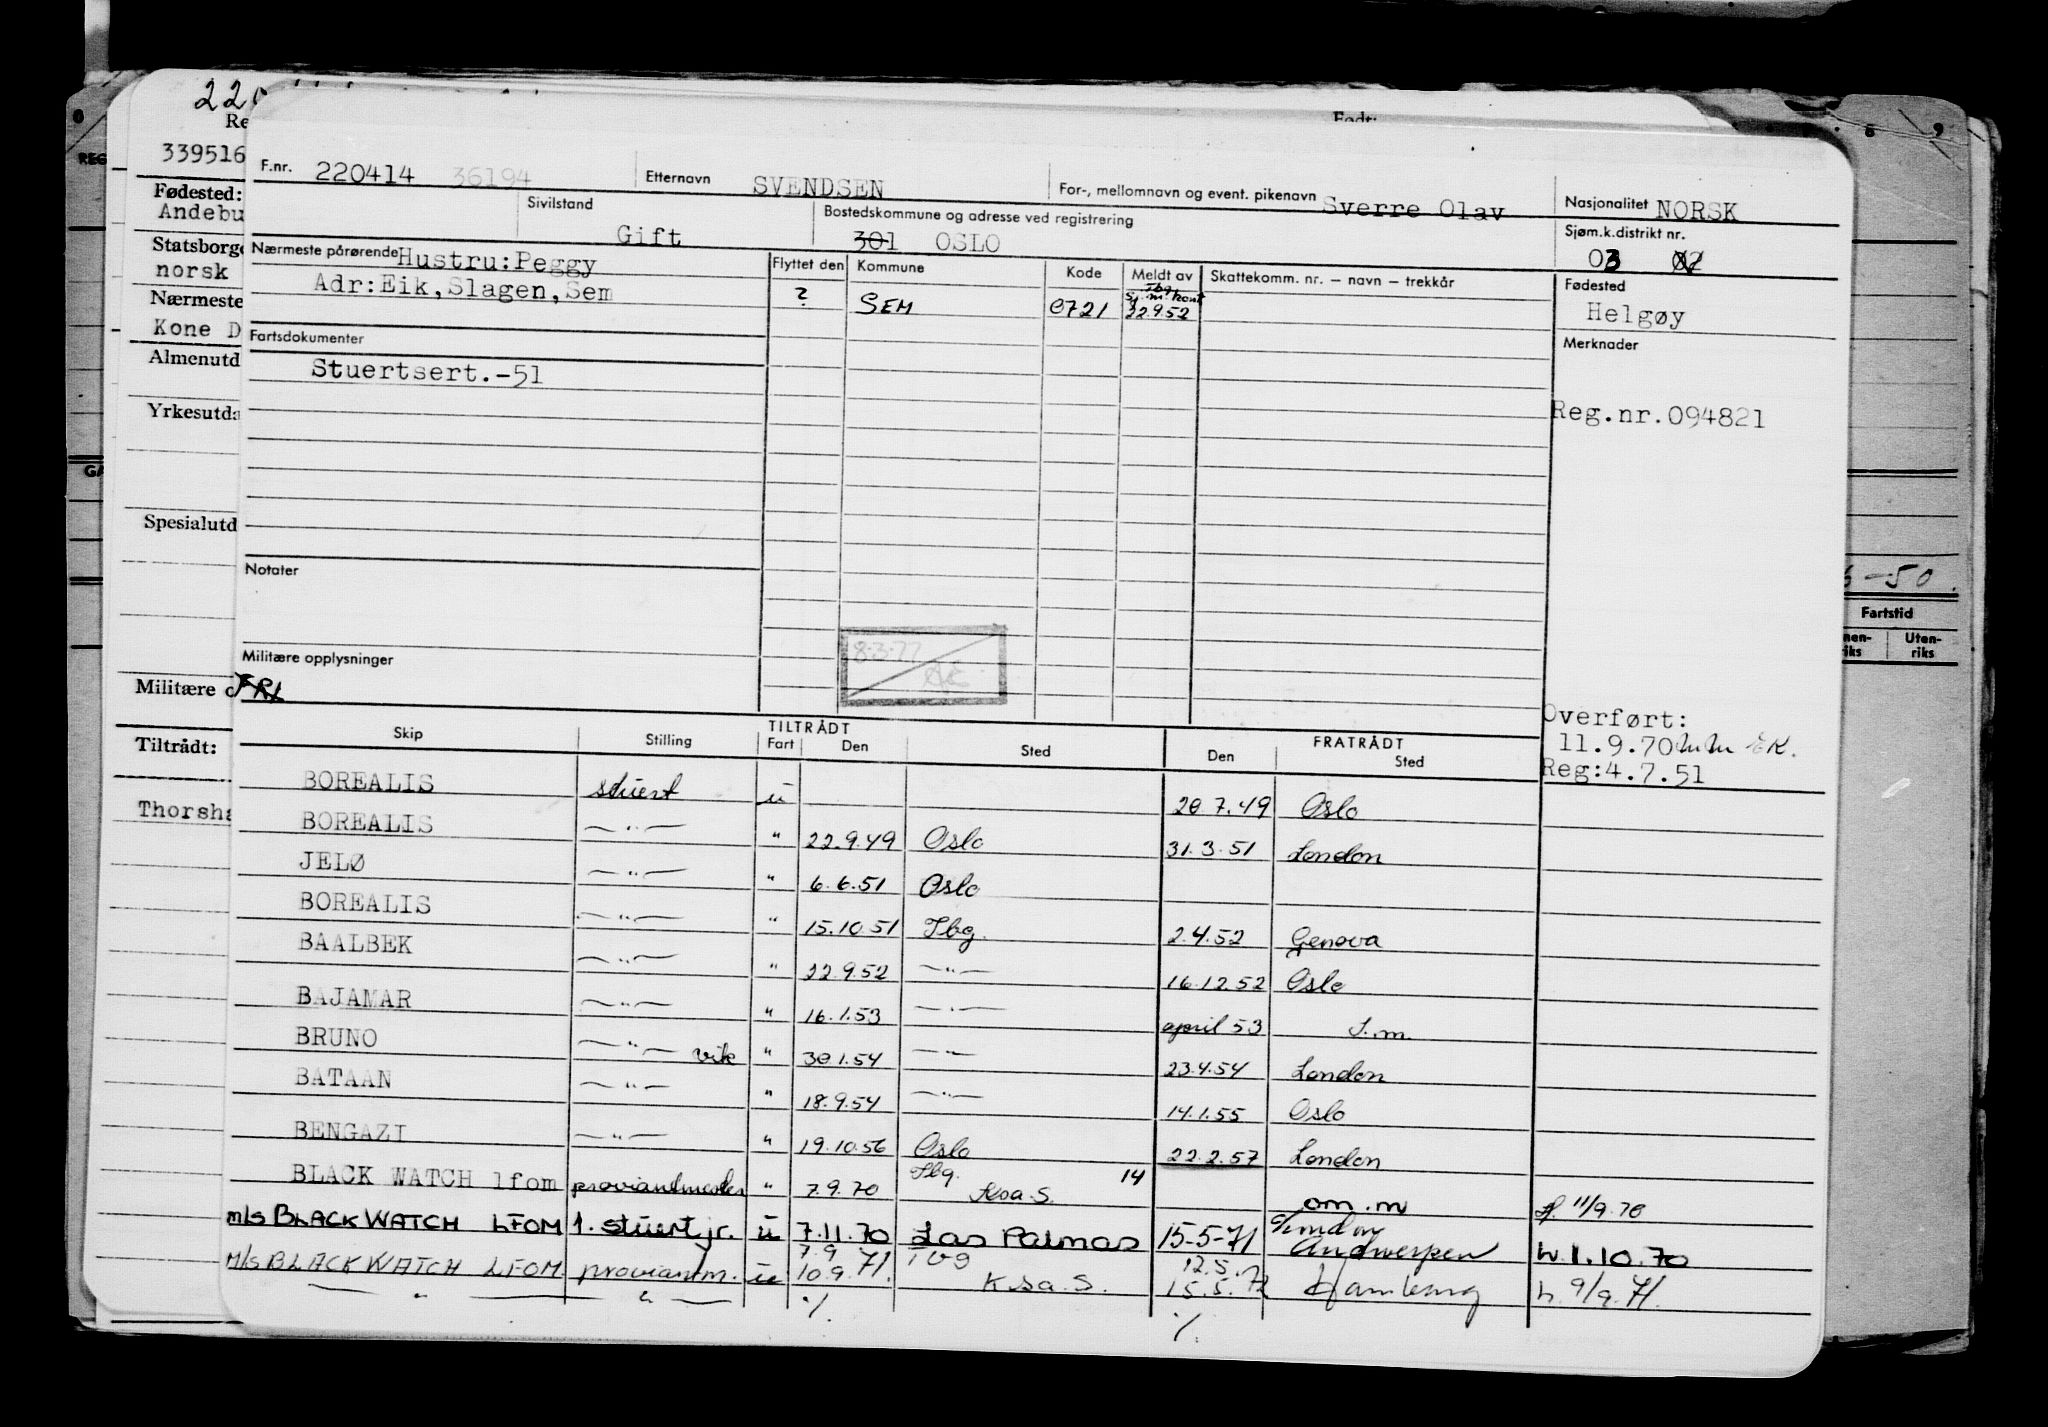 Født:
Re
339516
Fødested:
Andebu
Statsborge
norsk
Nærmeste
Kone D
Almenutd
Yrkesutda
Spesialutd
Militære o
Tiltrådt:
Thorsha
8 9
REG
-50.
Fartstid
nen-riks Uten-riks
F.nr. 220414 36194 Etternavn SVENDSEN For-, mellomnavn og event. pikenavn Sverre Olav Nasjonalitet NORSK
Sivilstand Gift Bostedskommune og adresse ved registrering 301 OSLO Sjøm.k.distrikt nr. 03 02
Nærmeste pårørende Hustru:Peggy Flyttet den Kommune Kode Meldt av Skattekomm. nr. – navn – trekkår Fødested
Adr:Eik,Slagen,Sem ? SEM 0721 Tbg Sj.m.kont 22.9.52 Helgøy
Fartsdokumenter Merknader
Stuertsert.-51
Reg.nr.094821
Notater
8.3.77
Militære opplysninger
FRI
Overført:
11.9.70
Reg:4.7.51
TILTRÅDT FRATRÅDT
Skip Stilling Fart Den Sted Den Sted
BOREALIS stuert u 20.7.49 Oslo
BOREALIS —"— " 22.9.49 Oslo 31.3.51 London
JELØ —"— " 6.6.51 Oslo
BOREALIS —"— " 15.10.51 Tbg. 2.4.52 Genova
BAALBEK —"— " 22.9.52 —"— 16.12.52 Oslo
BAJAMAR —"— " 16.1.53 —"— april 53 S.m.
BRUNO —"— vik " 30.1.54 —"— 23.4.54 London
BATAAN —"— " 18.9.54 —"— 14.1.55 Oslo
BENGAZI —"— " 19.10.56 Oslo 22.2.57 London
BLACK WATCH lfom proviantmester " 7.9.70 Tbg. Ksa.S. 14 om.m 11/9.70
m/s BLACK WATCH LFOM 1. stuert jr. u 7.11.70 Las Palmas 15-5-71 Antwerpen h.1.10.70
m/s BLACK WATCH LFOM. proviantm. u 7.9 10.9.71. Tbg Ksa.S. 12.5. 15.5.72 Hamburg h. 9/9.71.
—"— —"— % %